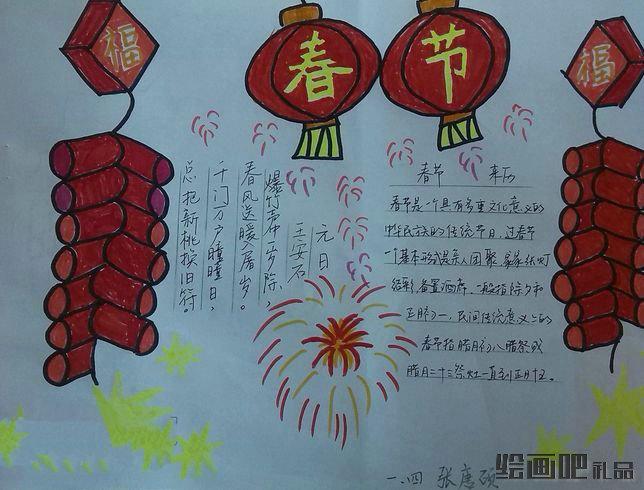 福
春
节
福
元日
王安石
爆竹声中一岁除，
春风送暖入屠岁。
千门万户瞳瞳日，
总把新桃换旧符。
春节 来历
春节是一个具有多重文化意义的
中华民族的传统节日，过春节
一个基本形式是亲人团聚，家家张灯
结彩，备置酒席，一般指除夕和
正月初一，民间传统意义上的
春节指腊月初八腊祭或
腊月二十三祭灶一直到正月十五。
一.四 张惠硕
绘画吧礼品